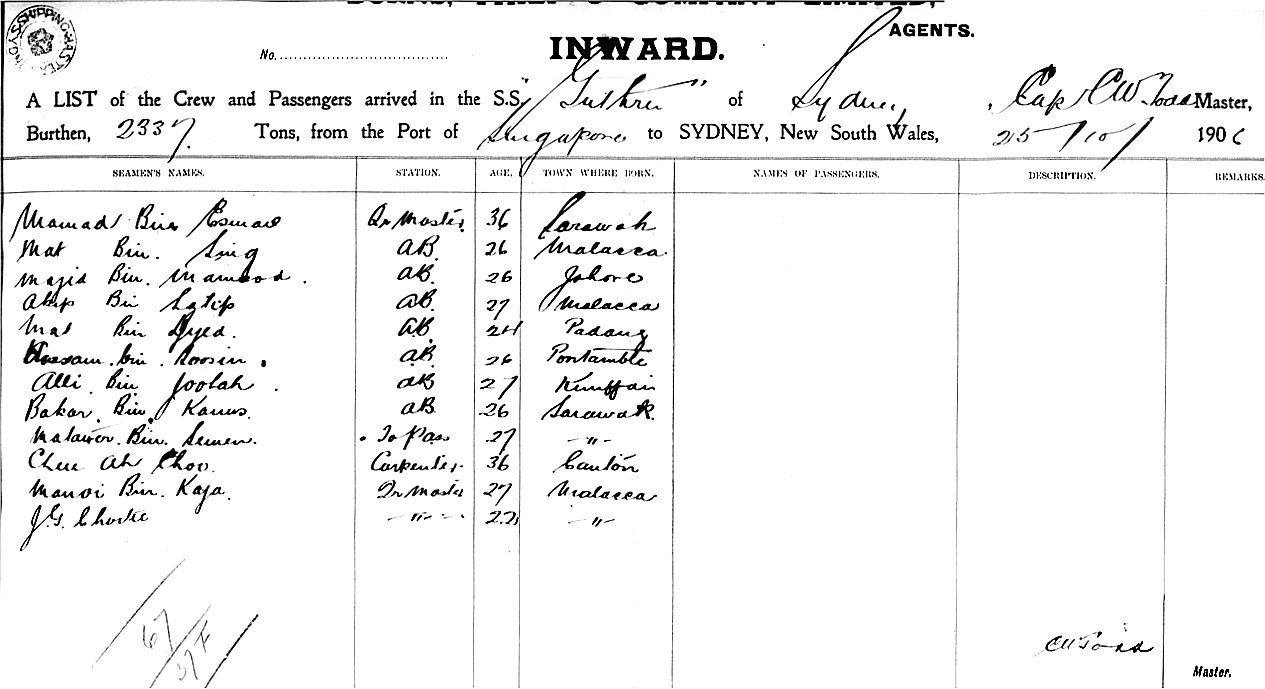 COMPANY LIMITED,
AGENTS.
No.
INWARD.
A LIST of the Crew and Passengers arrived in the S.S. "Guthrie" of Sydney, Cap C W Todd Master,
Burthen, 2337 Tons, from the Port of Singapore to SYDNEY, New South Wales, 25/10/ 1906
SEAMEN'S NAMES. STATION. AGE. TOWN WHERE BORN. NAMES OF PASSENGERS. DESCRIPTION. REMARKS.
Mamad Bin Esmael Qr Master 36 Sarawak
Mat Bin. Sing AB. 26 Malacca
Majid Bin. Mamood. AB. 26 Johore
Akip Bin Latip AB. 27 Malacca
Mat Bin Syed. AB. 24 Padang
Bin AB. 26
Alli Bin Joolah. AB 27
Bakar. Bin. AB 26 Sarawak.
Bin. Semen. To Pass 27 -"-
Ah Choo. Carpenter. 36 Canton
Bin. Kaja. Qr Master 27 Malacca
J.G. -"- 22 -"-
67
37 F
CW Todd
Master.